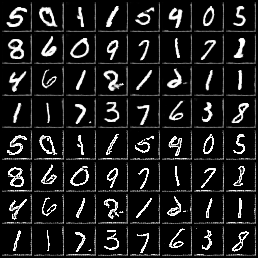 5 0 1 1 5 9 0 5
8 6 0 9 7 1 7 8
4 6 1 2 1 2 1 1
1 1 7 3 7 6 3 8
5 0 1 1 5 9 0 5
8 6 0 9 7 1 7 8
4 6 1 2 1 2 1 1
1 1 7 3 7 6 3 8